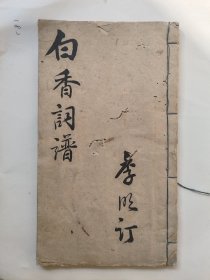 白香詞譜
李明訂